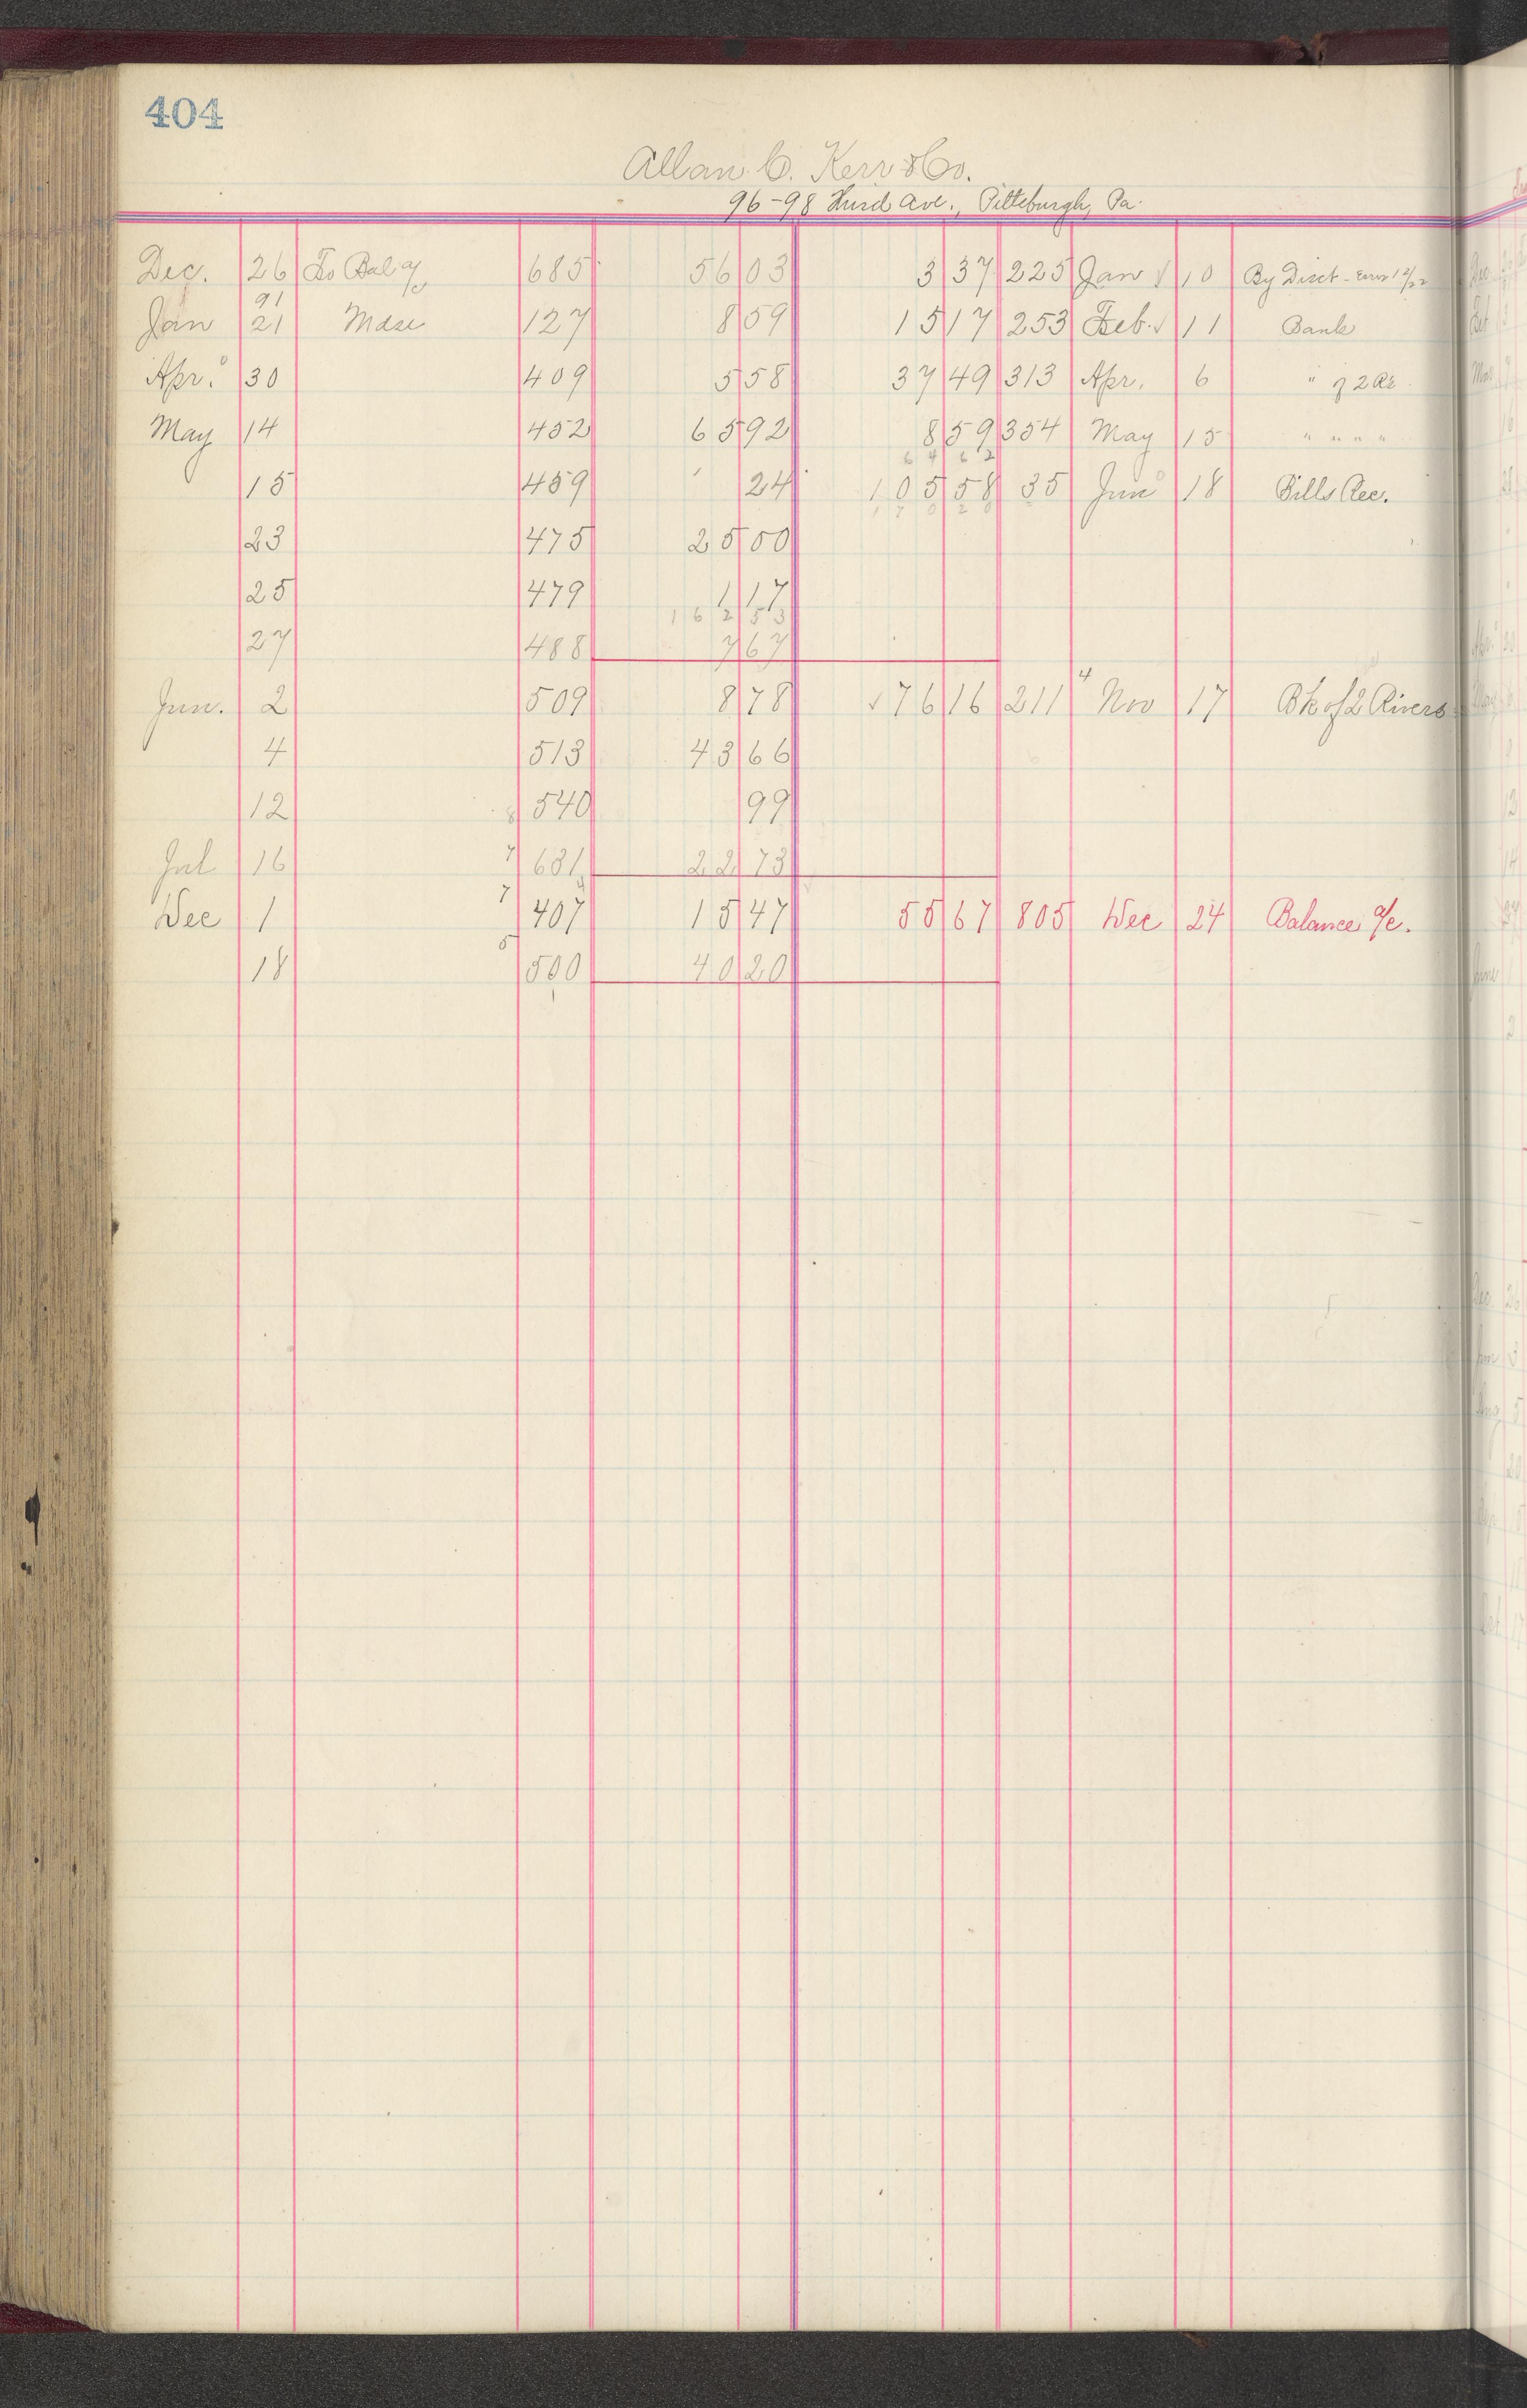 404
Allan C. Kerr & Co.
96-98 Third Ave., Pittsburgh, Pa.
Dec. 26 To Bal a/c 685 56 03 3 37 225 Jan 10 By Disct - Error 12/22
91
Jan 21 Mdse 127 8 59 15 17 253 Feb. 11 Bank
Apr. 30 409 5 58 37 49 313 Apr. 6 " of 2 Rs
May 14 452 65 92 8 59 354 May 15 " " " "
64 62
15 459 24 105 58 35 Jun 18 Bills Rec.
170 20
23 475 25 00
25 479 1 17
162 53
27 488 7 67
Jun. 2 509 8 78 76 16 211 4 Nov 17 Bk of 2 Rivers
4 513 43 66
12 8 540 99
Jul 16 7 631 22 73
Dec 1 7 407 15 47 55 67 805 Dec 24 Balance a/c.
18 5 500 40 20